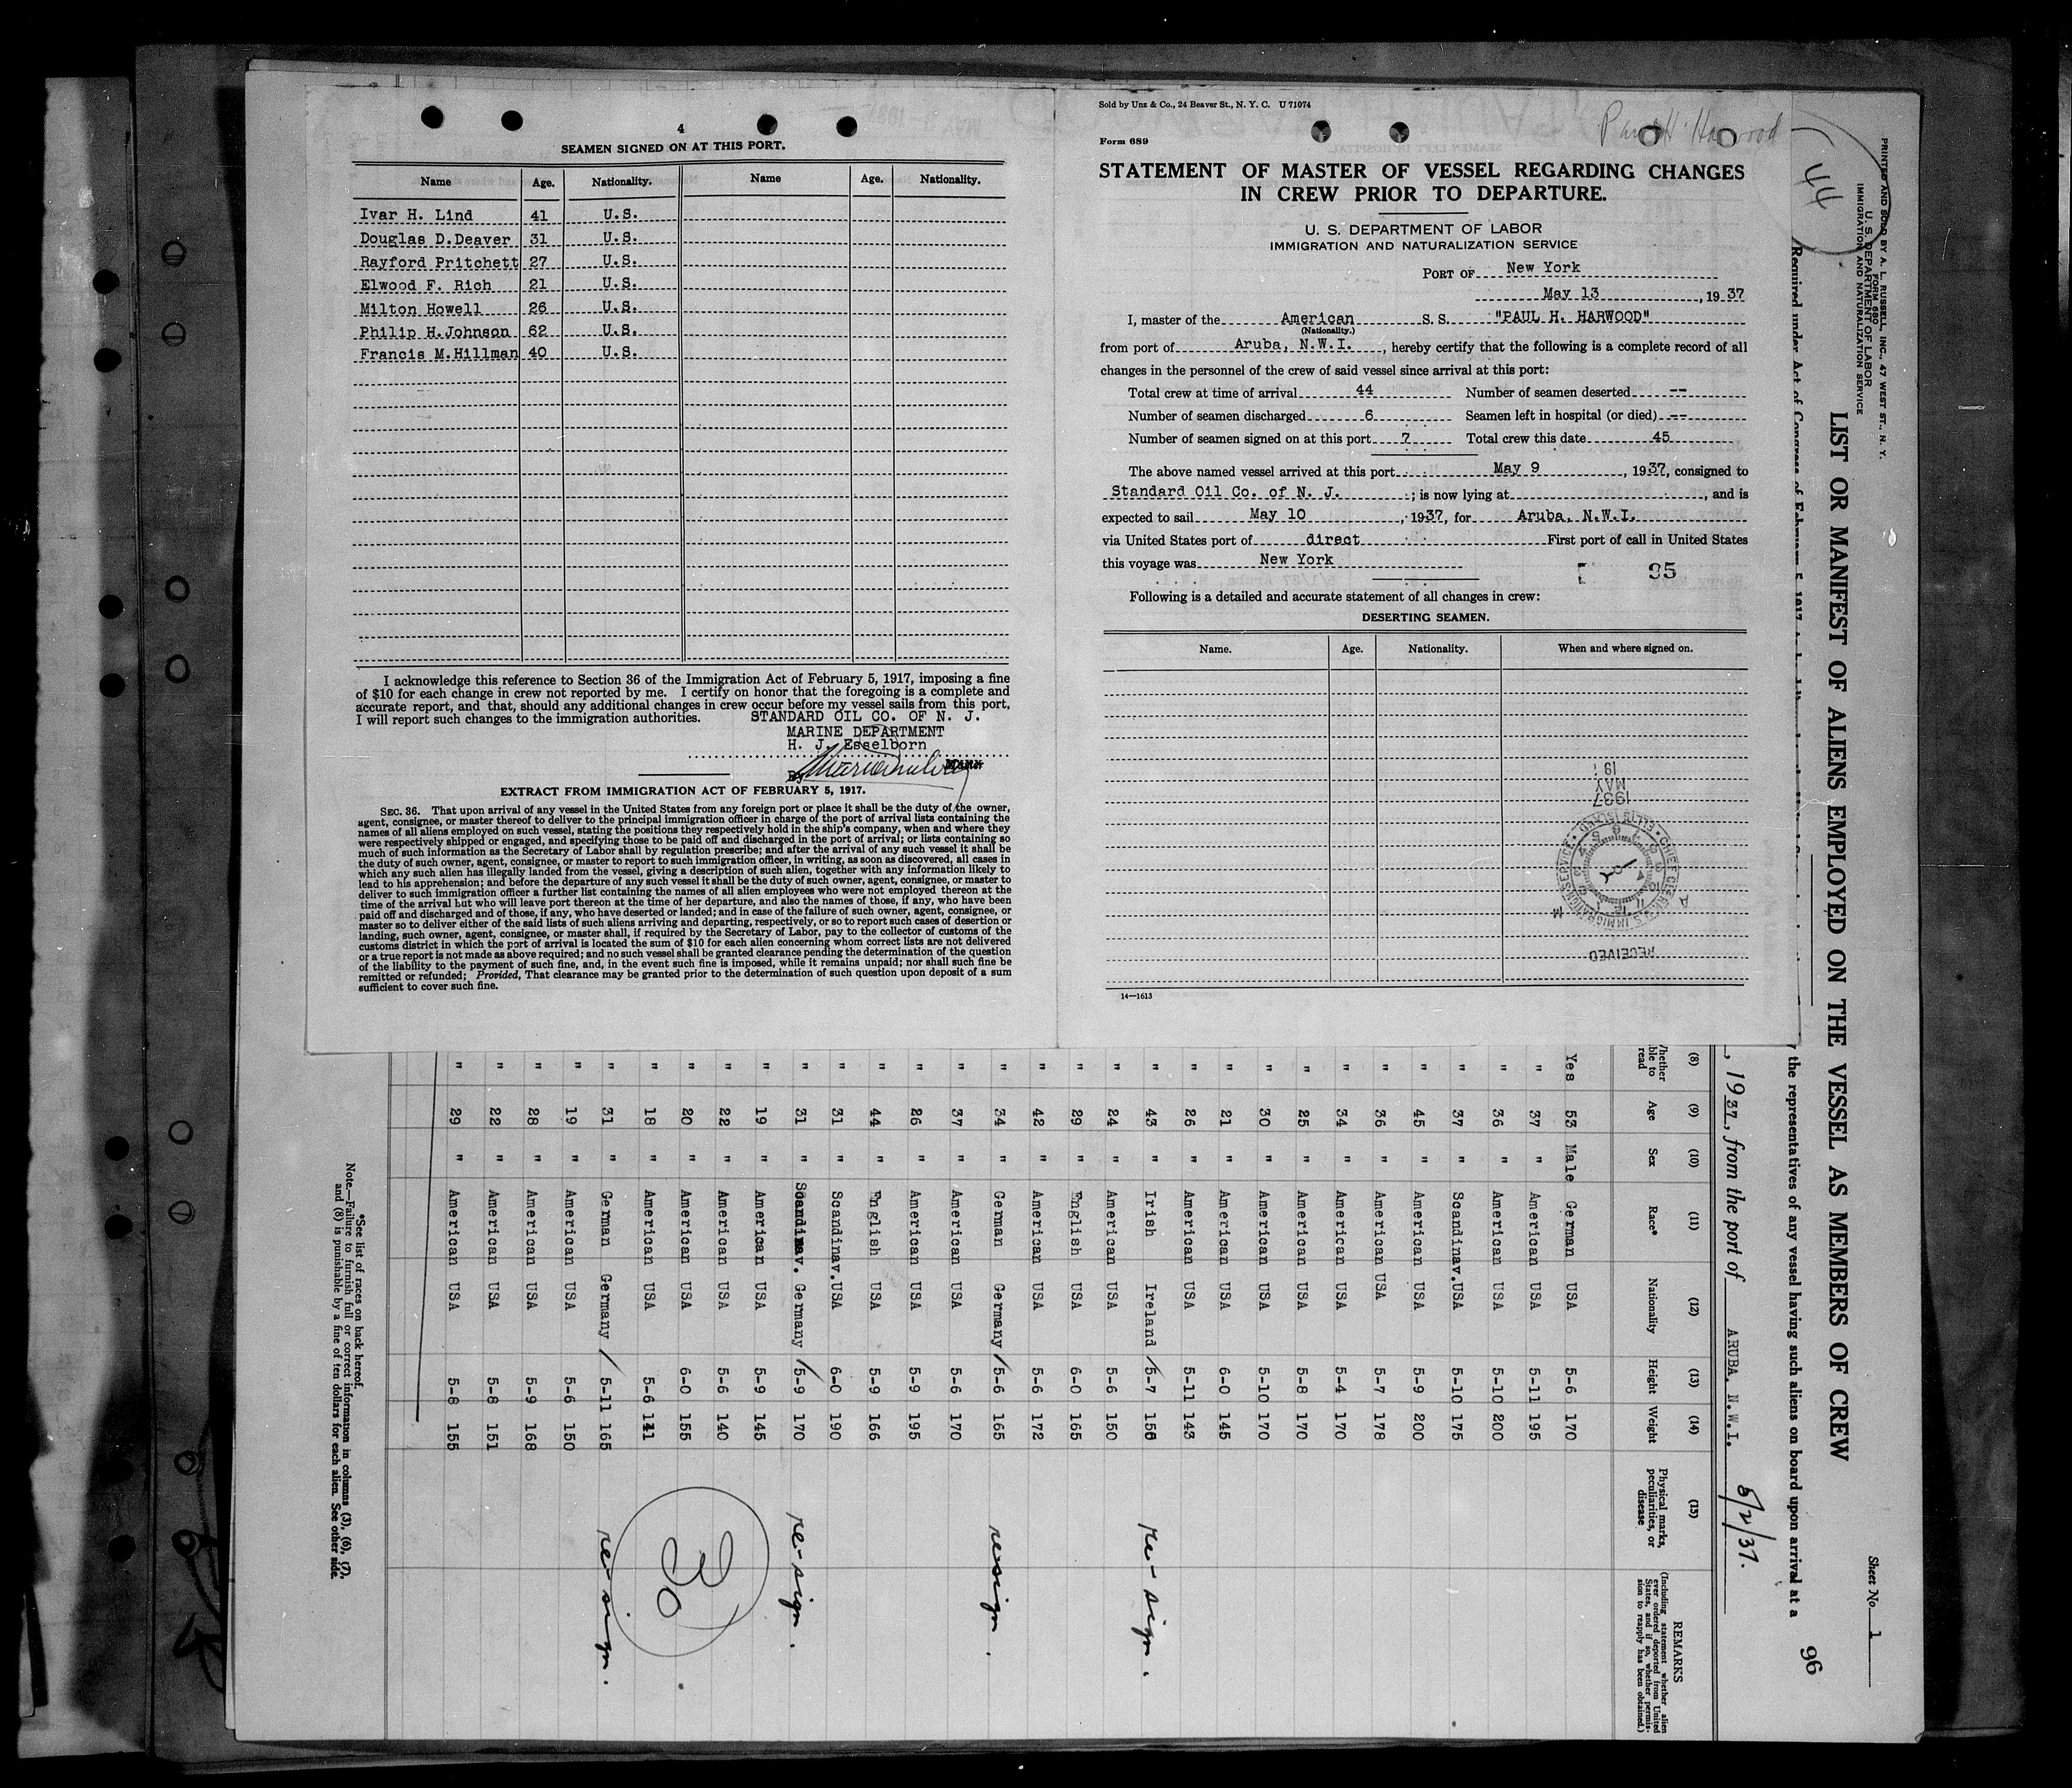 4
SEAMEN SIGNED ON AT THIS PORT.
Name Age. Nationality. Name Age. Nationality.
Ivar H. Lind 41 U.S.
Douglas D.Deaver 31 U.S.
Rayford Pritchett 27 U.S.
Elwood F. Rich 21 U.S.
Milton Howell 26 U.S.
Philip H.Johnson 62 U.S.
Francis M.Hillman 40 U.S.
I acknowledge this reference to Section 36 of the Immigration Act of February 5, 1917, imposing a fine
of $10 for each change in crew not reported by me. I certify on honor that the foregoing is a complete and
accurate report, and that, should any additional changes in crew occur before my vessel sails from this port,
I will report such changes to the immigration authorities. STANDARD OIL CO. OF N. J.
MARINE DEPARTMENT
H. J. Esselborn
By
EXTRACT FROM IMMIGRATION ACT OF FEBRUARY 5, 1917.
SEC. 36. That upon arrival of any vessel in the United States from any foreign port or place it shall be the duty of the owner,
agent, consignee, or master thereof to deliver to the principal immigration officer in charge of the port of arrival lists containing the
names of all aliens employed on such vessel, stating the positions they respectively hold in the ship's company, when and where they
were respectively shipped or engaged, and specifying those to be paid off and discharged in the port of arrival; or lists containing so
much of such information as the Secretary of Labor shall by regulation prescribe; and after the arrival of any such vessel it shall be
the duty of such owner, agent, consignee, or master to report to such immigration officer, in writing, as soon as discovered, all cases in
which any such alien has illegally landed from the vessel, giving a description of such alien, together with any information likely to
lead to his apprehension; and before the departure of any such vessel it shall be the duty of such owner, agent, consignee, or master to
deliver to such immigration officer a further list containing the names of all alien employees who were not employed thereon at the
time of the arrival but who will leave port thereon at the time of her departure, and also the names of those, if any, who have been
paid off and discharged and of those, if any, who have deserted or landed; and in case of the failure of such owner, agent, consignee, or
master so to deliver either of the said lists of such aliens arriving and departing, respectively, or so to report such cases of desertion or
landing, such owner, agent, consignee, or master shall, if required by the Secretary of Labor, pay to the collector of customs of the
customs district in which the port of arrival is located the sum of $10 for each alien concerning whom correct lists are not delivered
or a true report is not made as above required; and no such vessel shall be granted clearance pending the determination of the question
of the liability to the payment of such fine, and, in the event such fine is imposed, while it remains unpaid; nor shall such fine be
remitted or refunded; Provided, That clearance may be granted prior to the determination of such question upon deposit of a sum
sufficient to cover such fine.
Sold by Unz & Co., 24 Beaver St., N. Y. C. U 71074
Paul H. Harwood
Form 689
STATEMENT OF MASTER OF VESSEL REGARDING CHANGES
IN CREW PRIOR TO DEPARTURE.
U. S. DEPARTMENT OF LABOR
IMMIGRATION AND NATURALIZATION SERVICE
PORT OF New York
May 13, 1937
I, master of the American S. S. "PAUL H. HARWOOD"
(Nationality.)
from port of Aruba, N.W.I., hereby certify that the following is a complete record of all
changes in the personnel of the crew of said vessel since arrival at this port:
Total crew at time of arrival 44 Number of seamen deserted --
Number of seamen discharged 6 Seamen left in hospital (or died) --
Number of seamen signed on at this port 7 Total crew this date 45
The above named vessel arrived at this port May 9, 1937, consigned to
Standard Oil Co. of N. J.; is now lying at , and is
expected to sail May 10, 1937, for Aruba, N.W.I.
via United States port of direct First port of call in United States
this voyage was New York
95
Following is a detailed and accurate statement of all changes in crew:
DESERTING SEAMEN.
Name. Age. Nationality. When and where signed on.
MAY
1937
RECEIVED
14—1613
44
PRINTED AND SOLD BY A. L. RUSSELL, INC., 47 WEST ST., N. Y.
FORM 680
U. S. DEPARTMENT OF LABOR
IMMIGRATION AND NATURALIZATION SERVICE
Sheet No. 1
LIST OR MANIFEST OF ALIENS EMPLOYED ON THE VESSEL AS MEMBERS OF CREW
96
the representatives of any vessel having such aliens on board upon arrival at a
, 1937, from the port of ARUBA. N.W.I. 5/2/37.
(8) (9) (10) (11) (12) (13) (14) (15) REMARKS
Age Sex Race* Nationality Height Weight Physical marks, peculiarities, or disease
(Including statement whether alien ever ordered deported from United States, and if so, whether permission to reapply has been obtained.)
Yes 53 Male German USA 5-6 170
" 37 " American USA 5-11 195
" 36 " American USA 5-10 200
" 37 " Scandinav.USA 5-10 175
" 45 " American USA 5-9 200
" 36 " American USA 5-7 178
" 34 " American USA 5-4 170
" 25 " American USA 5-8 170
" 30 " American USA 5-10 170
" 21 " American USA 6-0 145
" 26 " American USA 5-11 143
" 43 " Irish Ireland / 5-7 re-sign.
" 24 " American USA 5-6 150
" 29 " English USA 6-0 165
" 42 " American USA 5-6 172
" 34 " German Germany / 5-6 165 resign.
" 37 " American USA 5-6 170
" 26 " American USA 5-9 195
" 44 " English USA 5-9 166
" 31 " Scandinav.USA 6-0 190
" 31 " Scandinav. Germany / 5-9 170 re-sign.
" 19 " American USA 5-9 145
" 22 " American USA 5-6 140
" 20 " American USA 6-0 155
" 18 " American USA 5-6 141
30
" 31 " German Germany / 5-11 165 re-sign.
" 19 " American USA 5-6 150
" 28 " American USA 5-9 168
" 22 " American USA 5-8 151
" 29 " American USA 5-8 155
*See list of races on back hereof.
Note.—Failure to furnish full or correct information in columns (3), (6), (7),
and (8) is punishable by a fine of ten dollars for each alien. See other side.